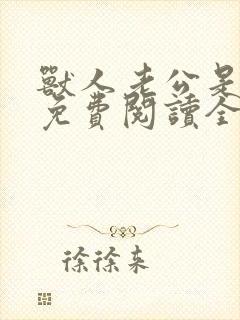 獸人老公是
免費閱讀全
徐徐來